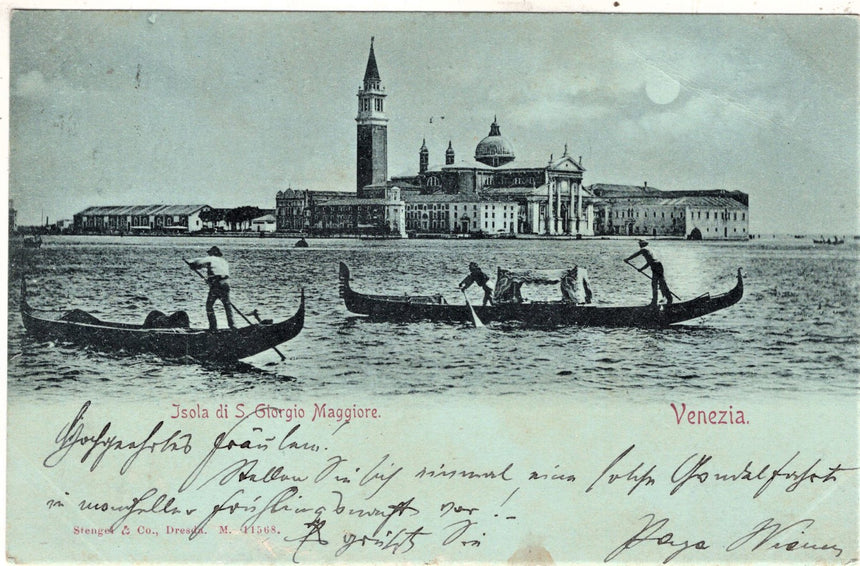 Isola di S. Giorgio Maggiore.
Venezia.
Hochgeehrtes Fräulein!
Stellen Sie sich einmal eine solche Gondelfahrt
in mondheller Frühlingsnacht vor!
Stengel & Co., Dresda. M. 11568.
Es grüßt Sie